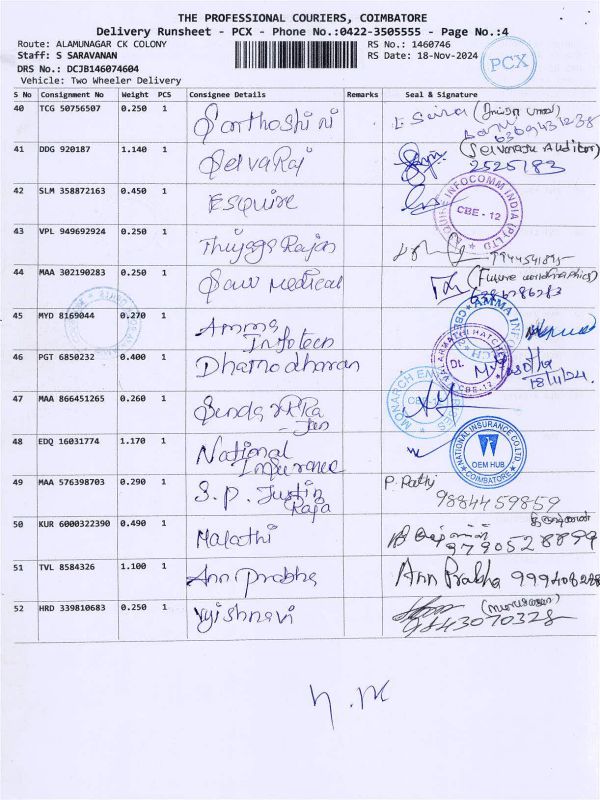 THE PROFESSIONAL COURIERS, COIMBATORE
Delivery Runsheet - PCX - Phone No.:0422-3505555 - Page No.:4
Route: ALAMUNAGAR CK COLONY RS No.: 1460746
Staff: S SARAVANAN RS Date: 18-Nov-2024
DRS No.: DCJB146074604
Vehicle: Two Wheeler Delivery
PCX
S No Consignment No Weight PCS Consignee Details Remarks Seal & Signature
40 TCG 50756507 0.250 1 Santhoshini
41 DDG 920187 1.140 1 SelvaRaj (Selvaraju Auditor)
2525183
42 SLM 358872163 0.450 1 Esquire
CBE - 12
43 VPL 949692924 0.250 1 Thiyaga Rajan 9944541895
44 MAA 302190283 0.250 1 Saw Medical
45 MYD 8169044 0.270 1 Amma
Infotech
AMMA INFOTECH
46 PGT 6850232 0.400 1 Dhamodharan
18/11/24.
47 MAA 866451265 0.260 1
MONARCH
48 EDQ 16031774 1.170 1 National
Insurance
NATIONAL INSURANCE CO.LTD.
OEM HUB
COIMBATORE
49 MAA 576398703 0.290 1 S.P. Justin
Raja
9884459859
50 KUR 6000322390 0.490 1 Malathi
9790528899
51 TVL 8584326 1.100 1 Ann Prabha Ann Prabha
52 HRD 339810683 0.250 1 Vyishnavi
9843070328